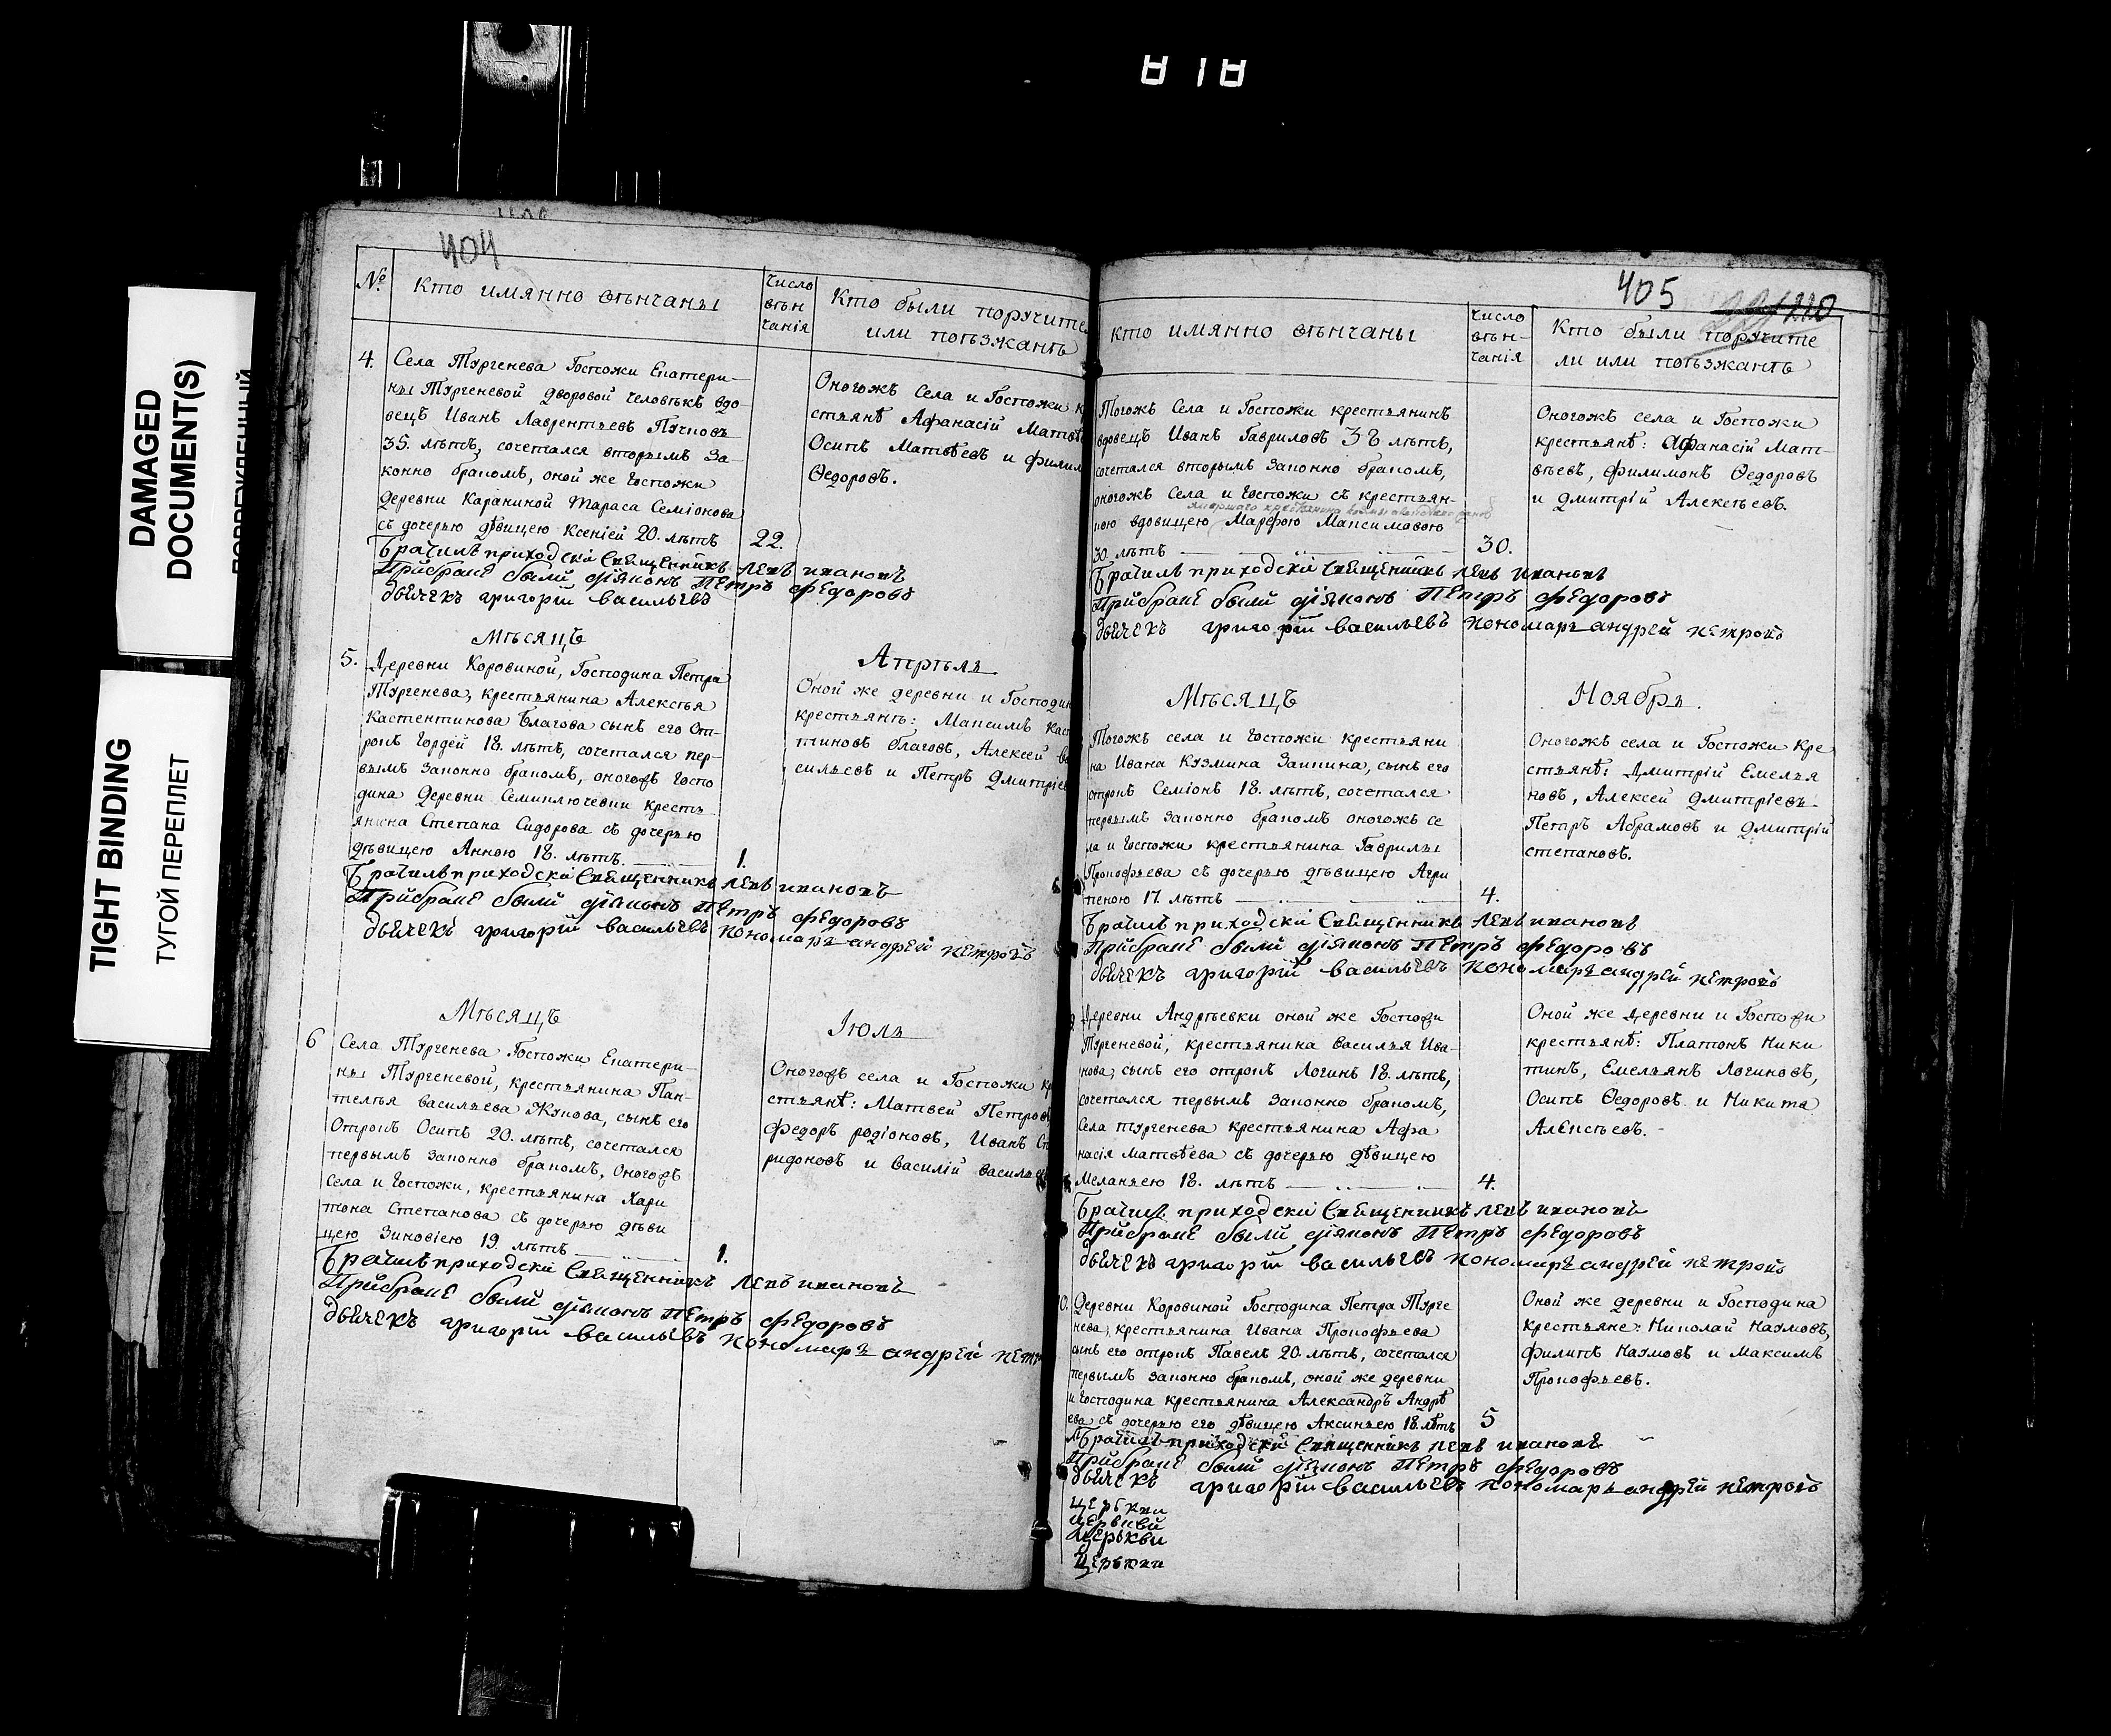 818
DAMAGED
DOCUMENT(S)
TIGHT BINDING
ТУГОЙ ПЕРЕПЛЕТ
404
№
Кто имянно вѣнчаны
Число
вѣн
чанія
Кто были поручите
или поѣзжанѣ
4.
Села Тургенева Госпожи Екатери-
ны Тургеневой дворовой человѣкъ вдо-
вецъ Иванъ Лаврентьевъ
35. лѣтъ, сочетался вторымъ за-
конно бракомъ, оной же госпожи
деревни Караниной Тараса Семіонова
съ дочерью дѣвицею Ксеніей 20. лѣтъ
22.
Оногожъ села и Госпожи к
стьянѣ Афанасій Матвѣ
Осипъ Матвѣевъ и Филим
Ѳедоровъ.
Брачилъ приходскій Священникъ Левъ Ивановъ
Прибракѣ были діяконъ Петръ Федоровъ
дьячекъ григорій васильевъ
Мѣсяцъ
Апрѣль
5.
Деревни Коровиной, Господина Петра
Тургенева, крестьянина Алексѣя
Кастентинова Благова сынъ его От-
рокъ Гордей 18. лѣтъ, сочетался пер-
вымъ законно бракомъ, оногожъ Госпо
дина деревни Семиключевки кресть
янина Степана Сидорова съ дочерью
дѣвицею Анною 18. лѣтъ.
1.
Оной же деревни и Господин
крестьянѣ: Максимъ Кас
тиновъ благовъ, Алексей ва
сильевъ и Петръ Дмитріев
Брачилъ приходскій Священникъ Левъ Ивановъ
Прибракѣ были діяконъ Петръ Федоровъ
дьячекъ григорій васильевъ пономарь андрей петровъ
Мѣсяцъ
Іюль
6
Села Тургенева Госпожи Екатери-
ны Тургеневой, крестьянина Пан-
телѣя васильева Жукова, сынъ его
Отрокъ Осипъ 20. лѣтъ, сочетался
первымъ законно бракомъ, Оногожъ
Села и Госпожи, крестьянина Хари
тона Степанова съ дочерью дѣви
цею Зиновіею 19. лѣтъ
1.
Оногожъ села и Госпожи кр
стьянѣ: Матвей Петров
Федоръ родіоновъ, Иванъ Сп
ридоновъ и василій васильев
Брачилъ приходскій Священникъ Левъ Ивановъ
Прибракѣ были діяконъ Петръ Федоровъ
дьячекъ григорій васильевъ пономарь андрей пет
405
220
кто имянно вѣнчаны
Число
вѣн-
чанія
Кто были поручите
ли или поѣзжанѣ
Тогожъ Села и Госпожи крестьянинъ
вдовецъ Иванъ Гавриловъ 38 лѣтъ,
сочетался вторымъ законно бракомъ,
оногожъ Села и Госпожи съ крестьян-
кою вдовицею Марфою Максимовою
30 лѣтъ
30.
Оногожъ села и Госпожи
крестьянѣ: Афанасій Мат-
вѣевъ, Филимонъ Ѳедоровъ
и Дмитрій Алексѣевъ.
Брачилъ приходскій Священникъ Левъ Ивановъ
Прибракѣ были діяконъ Петръ Федоровъ
дьячекъ григорій васильевъ пономарь андрей петровъ
Мѣсяцъ
Ноябрь.
Тогожъ села и Госпожи крестьяни
на Ивана Кузмина Заикина, сынъ его
отрокъ Семіонъ 18. лѣтъ, сочетался
первымъ законно бракомъ оногожъ се
ла и Госпожи крестьянина Гаврилы
Прокофьева съ дочерью дѣвицею Агри
пеною 17. лѣтъ
4.
Оногожъ села и Госпожи Кре
стьянѣ: Дмитрій Емелья
новъ, Алексей Дмитріевъ
Петръ Абрамовъ и Дмитрій
степановъ.
Брачилъ приходскій Священникъ Левъ Ивановъ
Прибракѣ были діяконъ Петръ Федоровъ
дьячекъ григорій васильевъ пономарь андрей петровъ
Деревни Андрѣевки оной же Госпожи
Тургеневой, крестьянина василья Ива-
нова, сынъ его отрокъ Логинъ 18. лѣтъ,
сочетался первымъ законно бракомъ,
Села тургенева крестьянина Афа
насія матвѣева съ дочерью дѣвицею
Меланьею 18. лѣтъ
4.
Оной же деревни и Госпожи
крестьянѣ: Платонъ Ники
тинъ, Емельянъ Логиновъ,
Осипъ Ѳедоровъ и Никита
Алексѣевъ.
Брачилъ приходскій Священникъ Левъ Ивановъ
Прибракѣ были діяконъ Петръ Федоровъ
дьячекъ григорій васильевъ пономарь андрей петровъ
Деревни Коровиной Господина Петра Турге
нева, крестьянина Ивана Прокофьева
сынъ его отрокъ Павелъ 20. лѣтъ, сочетался
первымъ законно бракомъ, оной же деревни
и Господина крестьянина Александръ Андрѣ
ева съ дочерью его дѣвицею Аксиньею 18. лѣтъ
5
Оной же деревни и Господина
крестьяне: Николай Наумовъ,
Филипъ Наумовъ и Максимъ
Прокофьевъ.
Брачилъ приходскій Священникъ Левъ Ивановъ
Прибракѣ были діяконъ Петръ Федоровъ
дьячекъ григорій васильевъ пономарь андрей петровъ
церькви
церькви
церькви
церькви